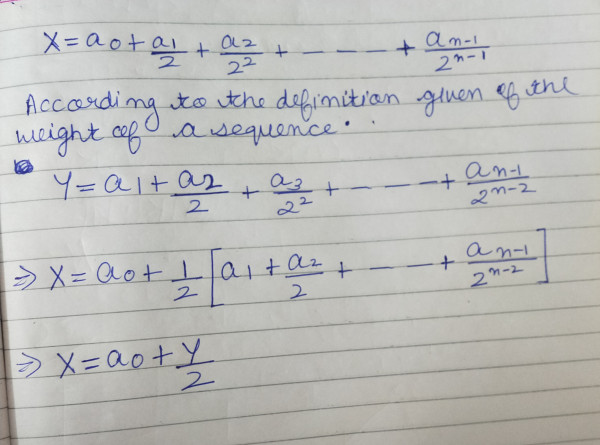 X = a0 + a1/2 + a2/2² + - - - - + an-1/2^n-1
According to the definition given of the
weight of a sequence.
Y = a1 + a2/2 + a3/2² + - - - - + an-1/2^n-2
⇒ X = a0 + 1/2 [a1 + a2/2 + - - - + an-1/2^n-2]
⇒ X = a0 + Y/2